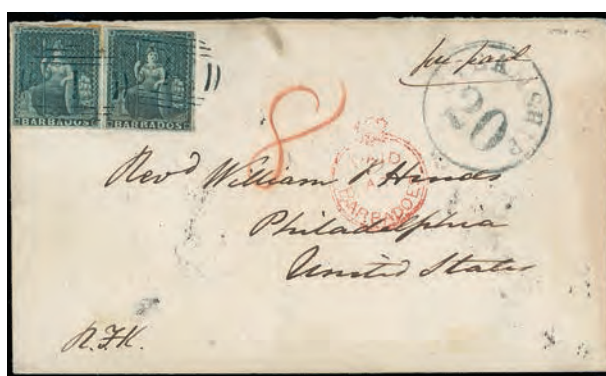 pre-paid
BARBADOS BARBADOS
STEAMSHIP
20
8
PAID
AT
BARBADOES
Revd William P. Hinds
Philadelphia
United States
R.F.K.